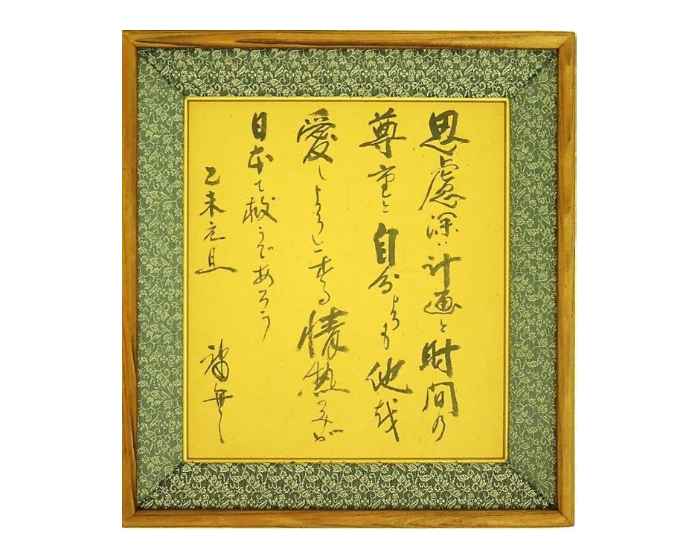 思慮深い計画と時間の
尊重と自分よりも他を
愛しようとする情熱のみが
日本を救うであろう
乙未元旦